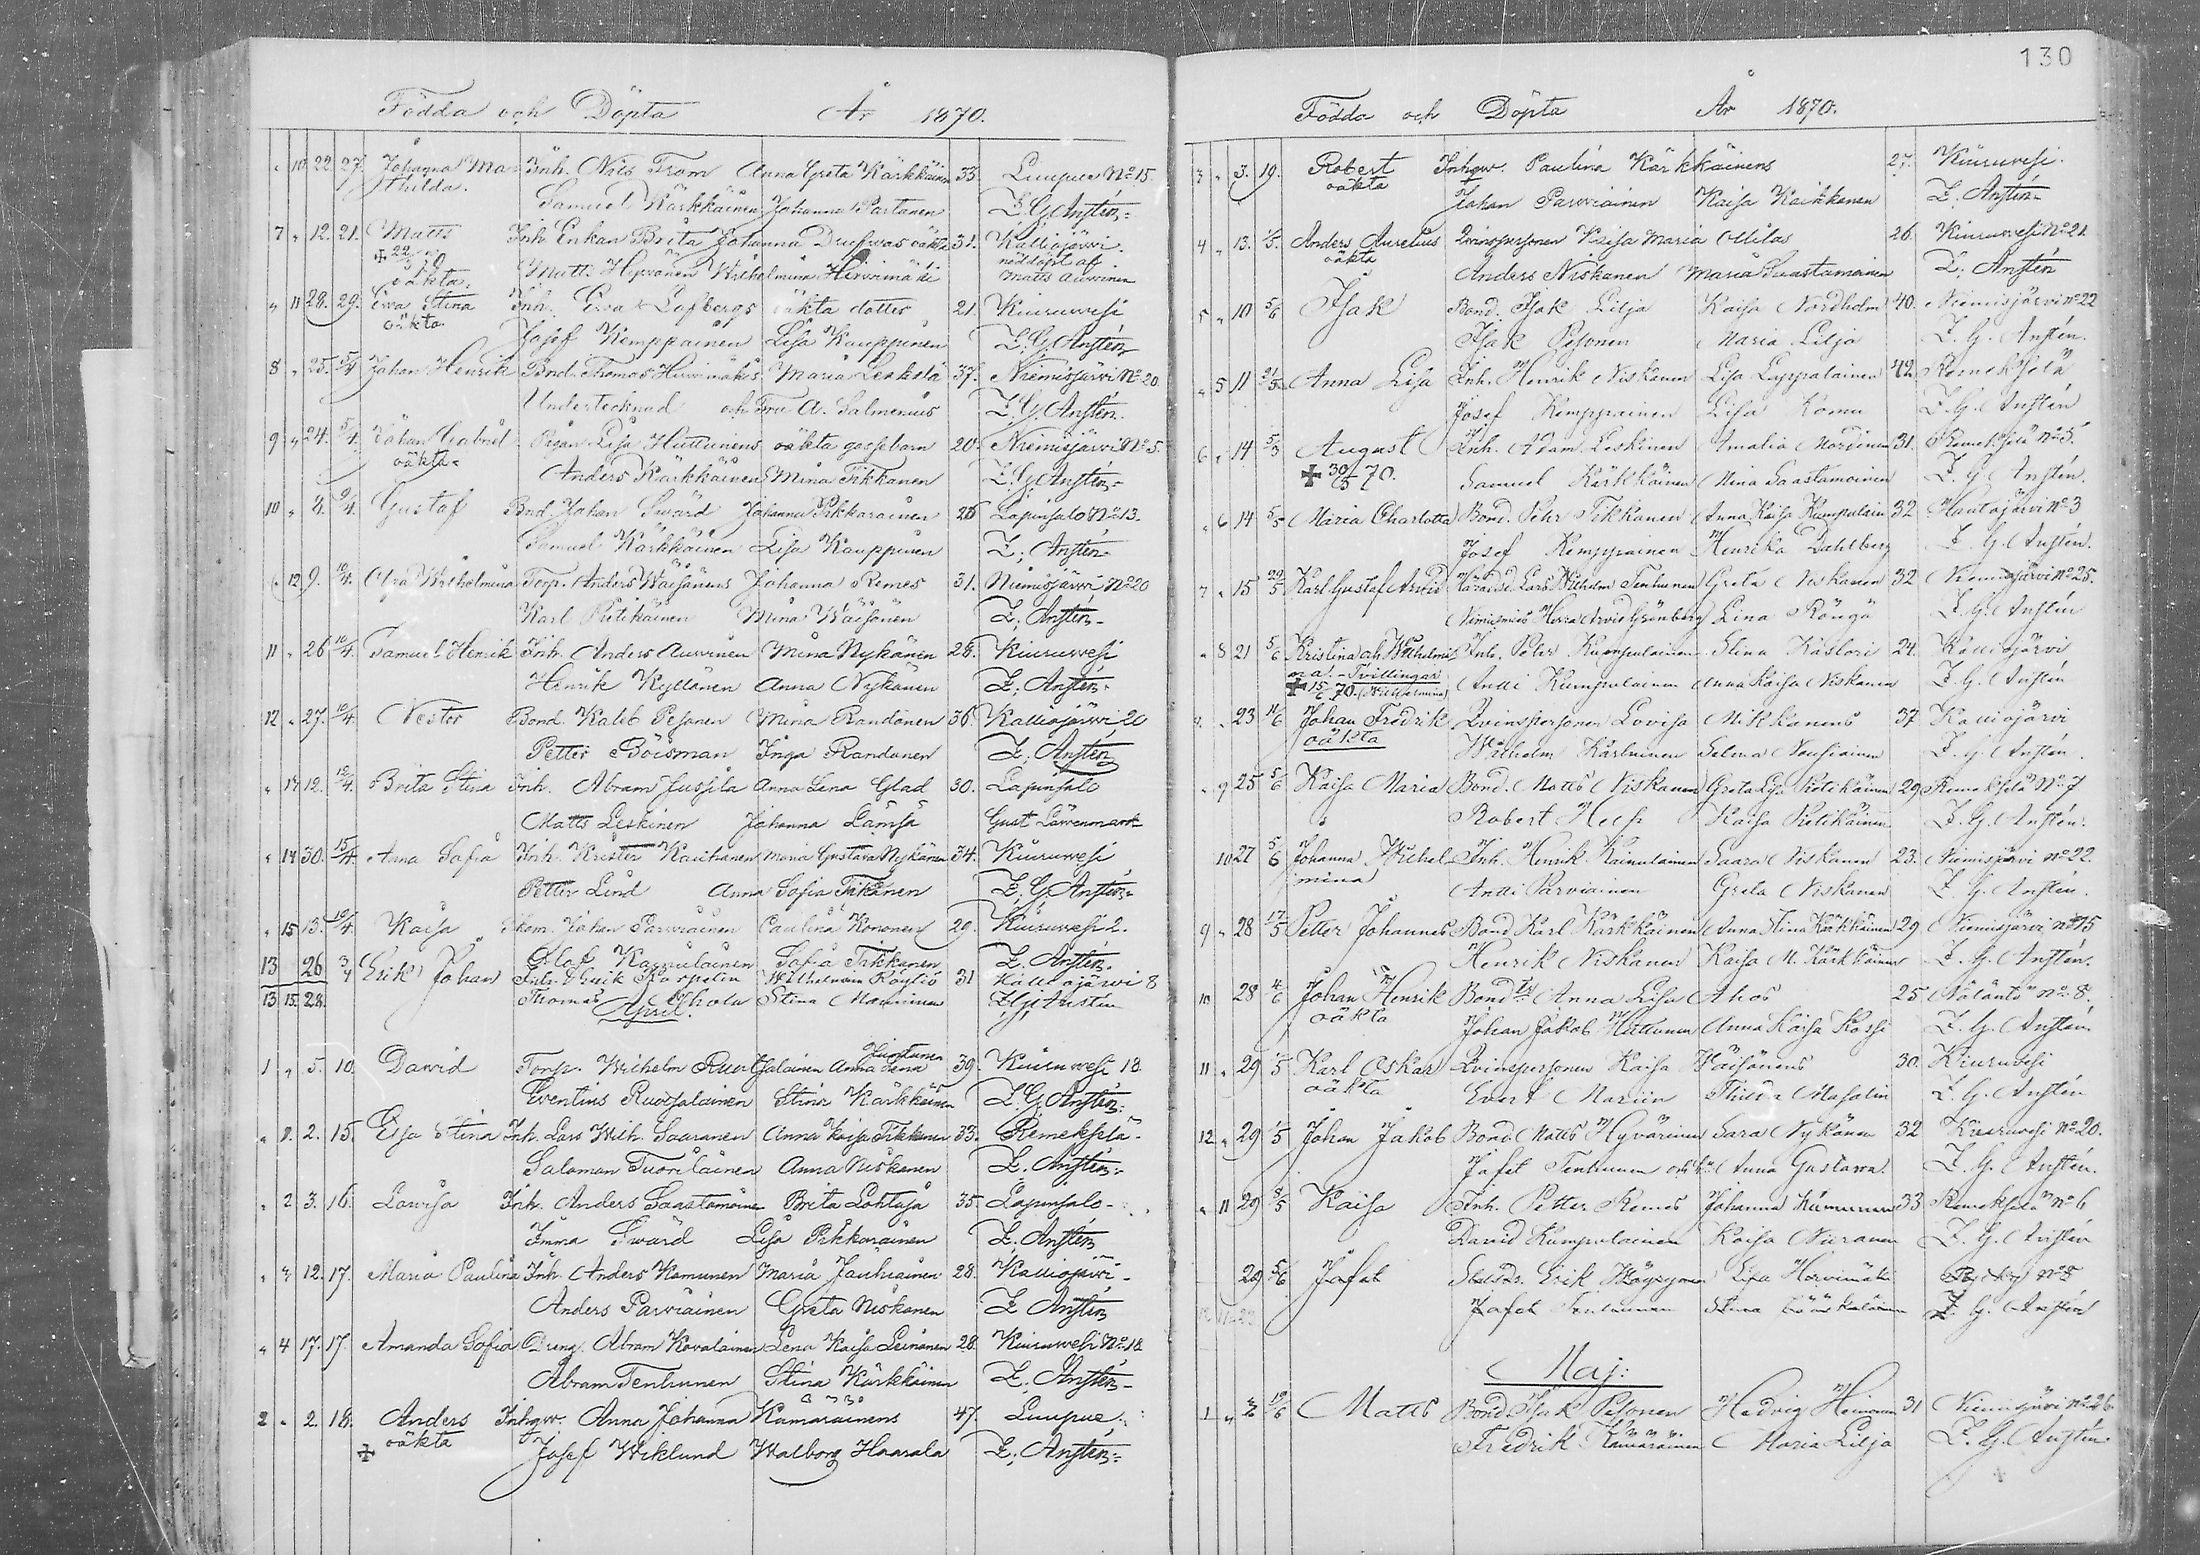 Födda och Döpta År 1870.
" 10. 22. 27. Johanna Ma- Inh. Nils From Anna Greta Kärkkäinen 33. Luupue No 15.
thilda. Samuel Kärkkäinen Johanna Partanen Z. G. Anstén
7 " 12. 21. Matts Inh. Enkan Brita Johanna oäkta 31. Kalliojärvi.
+ 22/3 70 Matts Hyvönen Wilhelmina Hirvimäki nöddöpt af
oäkta. Matts Auvinen
" 11 28. 29. Ewa Stina Inh. Ewa Lofbergs oäkta dotter 21. Kiuruwesi
oäkta Josef Kemppainen Lisa Kauppinen Z. G. Anstén
8 " 25. 5/4 Johan Henrik Bnd. Thomas Hirvimäkis Maria Leskelä 37. Niemisjärvi No 20.
Undertecknad och Fru A. Salmenius Z. G. Anstén.
9 " 24. 5/4. Johan Gabriel Pigan Lisa Huttunens oäkta gossebarn 20. Niemisjärvi No 5.
oäkta. Anders Kärkkäinen Mina Tikkanen Z. G. Anstén
10 " 8. 9/4. Gustaf Bnd. Johan Swärd Johanna Pikkarainen 26 Lapinsalo No 13.
Samuel Kärkkäinen Lisa Kauppinen Z. Anstén
" 12 9. 10/4. Wilhelmina Torp. Anders Wäisänens Johanna Remes 31. Niemisjärvi No 20
Karl Pietikäinen Mina Wäisänen Z. Anstén
11 " 26 10/4. Samuel Henrik Inh. Anders Auvinen Mina Nykänen 28. Kiuruwesi
Henrik Kyllönen Anna Nykänen Z. Anstén
12 " 27. 10/4. Nestor Bond. Kaleb Pesonen Mina Randonen 36. Kalliojärvi 20
Petter Böisman Inga Randanen Z. Anstén
" 13 12. 12/4. Brita Stina Inh. Abram Jussila Anna Lena Glad 30. Lapinsalo
Matts Leskinen Johanna Lämsä Gust Lawenmark
" 14 30. 15/4. Anna Sofia Inh. Krister Kauhanen Maria Gustava Nykänen 34. Kiuruwesi
Petter Lind Anna Sofia Tikkanen Z. G. Anstén
" 15 13. 10/4. Kaisa Johan Parviainen Paulina Kononen 29. Kiuruwesi 2.
Olof Kainulainen Sofia Tikkanen Z. Anstén.
13 26 3/4 Erik Johan Inh. Henrik Karpelin Wilhelmina Röytiö 31 Kalliojärvi 8
13 15. 28. Thomas Ahola Stina Manninen Z. G. Anstén
April.
1 " 5. 10. David Torp. Wilhelm Ruotsalainen Anna Lena Juntunen 39. Kiuruwesi 18.
Eventius Ruotsalainen Stina Kärkkäinen Z. G. Anstén
" 1. 2. 15. Elsa Stina Inh. Lars Wilh. Saaranen Anna Kaisa Tikkanen 33. Remekselä.
Salomon Tuorilainen Anna Niskanen Z. Anstén
" 2 3. 16. Lowisa Inh. Anders Saastamoinen Brita Lohtaja 35. Lapinsalo
Imma Swärd Lisa Pikkarainen Z. Anstén
" 3 12. 17. Maria Paulina Inh. Anders Kamunen Maria Jauhiainen 28. Kalliojärvi
Anders Parviainen Greta Niskanen Z. Anstén
" 4 17. 17. Amanda Sofia Dreng. Abram Kovalainen Lena Kaisa Leinonen 28. Kiuruwesi No 18
Abram Tenhunen Stina Kärkkäinen Z. Anstén
2 " 2. 18. Anders Inhqw. Anna Johanna Kamarainens 47. Luupue.
oäkta Josef Wiklund Walborg Haarala Z. Anstén
+
130
Födda och Döpta År 1870.
3 " 3. 19. Robert Inhqw. Paulina Kärkkäinens 27. Kiuruwesi.
oäkta Johan Parviainen Kaisa Kaikkonen Z. Anstén
4 " 13. 1/5. Anders Aurelius Qvinspersonen Kaisa Maria Ollilas 26. Kiuruwesi No 21.
oäkta Anders Niskanen Maria Saastamoinen Z. Anstén
5 " 10 5/6 Isak Bond. Isak Lilja Kaisa Nordholm 40. Niemisjärvi no 22
Isak Pesonen Maria Lilja Z. G. Anstén.
" 5 11 21/5 Anna Lisa Inh. Henrik Niskanen Lisa Lappalainen 42 Remekselä
Josef Kemppainen Lisa Komu Z. G. Anstén
6 " 14 5/5 August Inh. Adam Leskinen Amalia Nordman 31. Remekselä no 5.
+ 30/5 70. Samuel Kärkkäinen Mina Saastamoinen Z. G. Anstén.
" 6 14 5/5 Maria Charlotta Bond. Pehr Tikkanen Anna Kaisa Kumpulain 32 Hautajärvi no 3
Josef Kemppainen Henrika Dahlberg Z. G. Anstén.
7 " 15 22/5 Karl Gustaf Arvid Häradsd. Lars Wilhelm Tenhunen Greta Niskanen 32 Niemisjärvi no 25.
Nimismies Herra Arvid Grönberg Lina Röngä Z. G. Anstén
" 8 21 5/6 Kristina och Wilhelmi- Inh. Pehr Kumpulainen Stina Kastori 24. Kalliojärvi
na. Tvillingar Anti Kumpulainen Anna Kaisa Niskanen Z. G. Anstén
+ 15/6 70. (Wilhelmina)
8 " 23 11/6 Johan Fredrik Qvinspersonen Lovisa Mikkanens 37 Kalliojärvi
oäkta Wilhelm Kärkkäinen Selma Nousiainen Z. G. Anstén.
" 9 25 5/6 Kaisa Maria Bond. Matts Niskanen Greta Lisa Pietikäinen 29 Remekselä No 7
Robert Hess Kaisa Pietikäinen Z. G. Anstén.
10 27 5/6 Johanna Wilhel- Inh. Henrik Kainulainen Saara Niskanen 23. Niemisjärvi no 22.
mina Anti Parviainen Greta Niskanen Z. G. Anstén.
9 " 28 17/5 Petter Johannes Bond Karl Kärkkäinen Anna Stina Kärkkäinen 29 Niemisjärvi no 15
Henrik Niskanen Kaisa M. Kärkkäinen Z. G. Anstén.
10 28 4/6 Johan Henrik Bonddr Anna Lisa Ahos 25 Näläntö no 8.
oäkta Johan Jakob Huttunen Anna Kaisa Kossi Z. G. Anstén
11 " 29 1/5 Karl Oskar Qvinspersonen Kaisa Wäisänens 30. Kiuruwesi
oäkta Evert Mariin Thilda Masalin Z. G. Anstén
12 " 29 1/5 Johan Jakob Bond Matts Hyvärinen Sara Nykänen 32 Kiuruwesi No 20.
Jafet Tenhunen Anna Gustava. Z. G. Anstén.
" 11 29 5/5 Kaisa Inh. Petter Remes Johanna Kämunen 33 Remekselä no 6
David Kumpulainen Kaisa Niiranen Z. G. Anstén
29 5/6 Jafet Erik Lisa Hirvimäki no 8
Jafet Tenhunen Stina Z. G. Anstén
Maj:
1 " 2 12/6 Matts Bond Isak Pesonen Hedvig Heinonen 31 Niemisjärvi no 26.
Fredrik Kämäräinen Maria Lilja Z. G. Anstén.